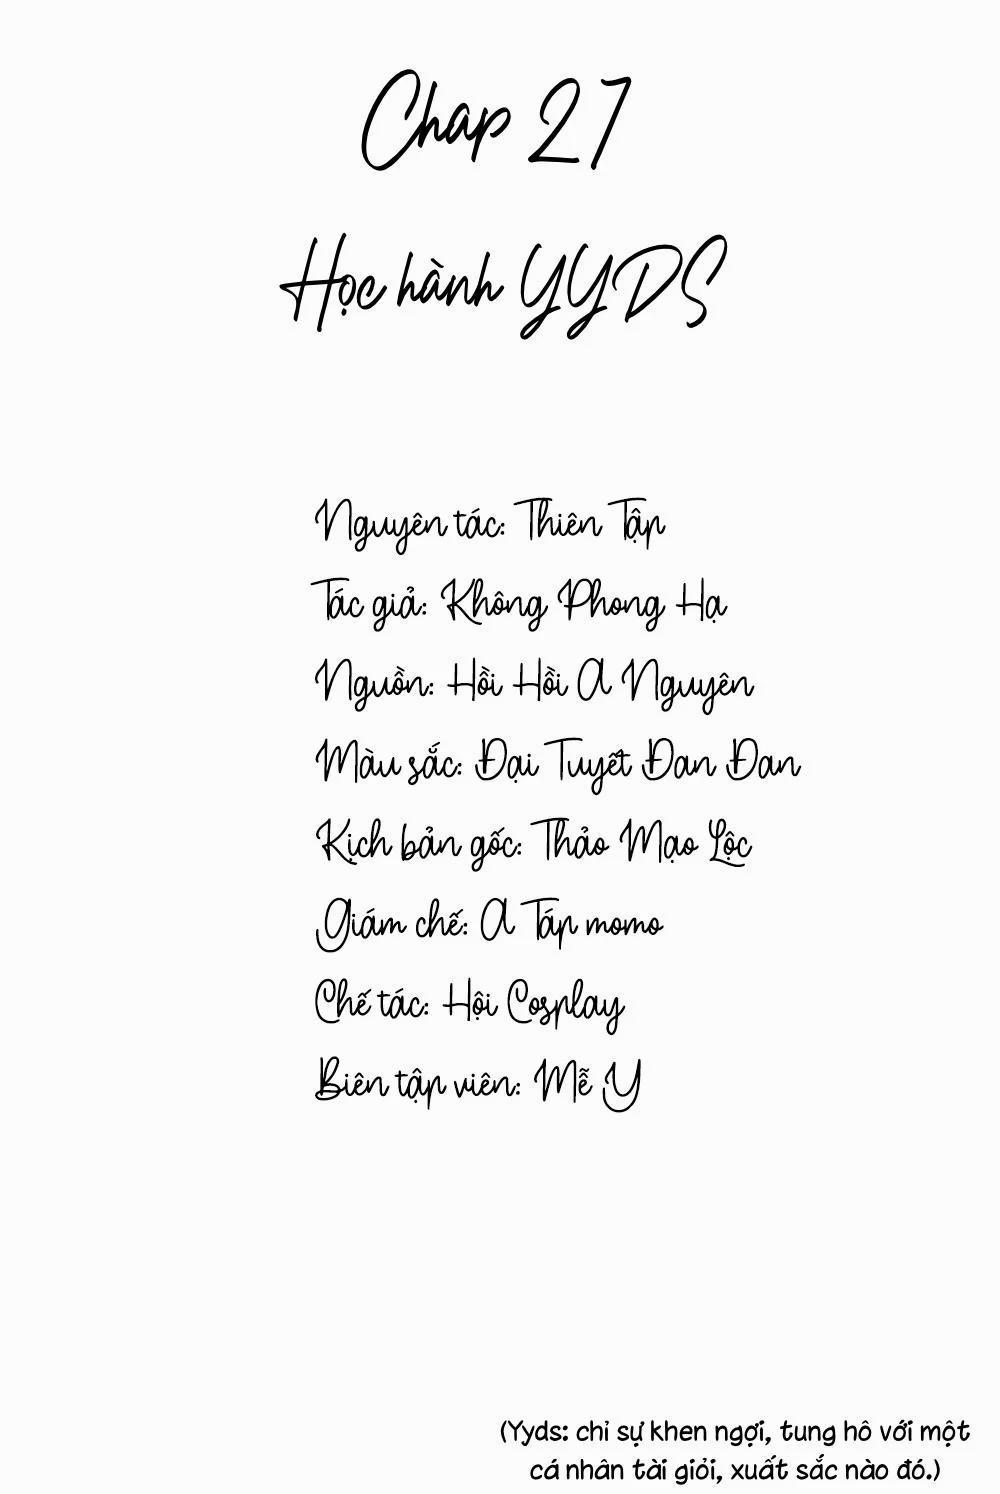 Chap 27
Học hành YYDS
Nguyên tác: Thiên Tập
Tác giả: Không Phong Hạ
Nguồn: Hồi Hồi A Nguyên
Màu sắc: Đại Tuyết Đan Đan
Kịch bản gốc: Thảo Mạo Lộc
Giám chế: A Táp momo
Chế tác: Hội Cosplay
Biên tập viên: Mễ Y
(Yyds: chỉ sự khen ngợi, tung hô với một
cá nhân tài giỏi, xuất sắc nào đó.)